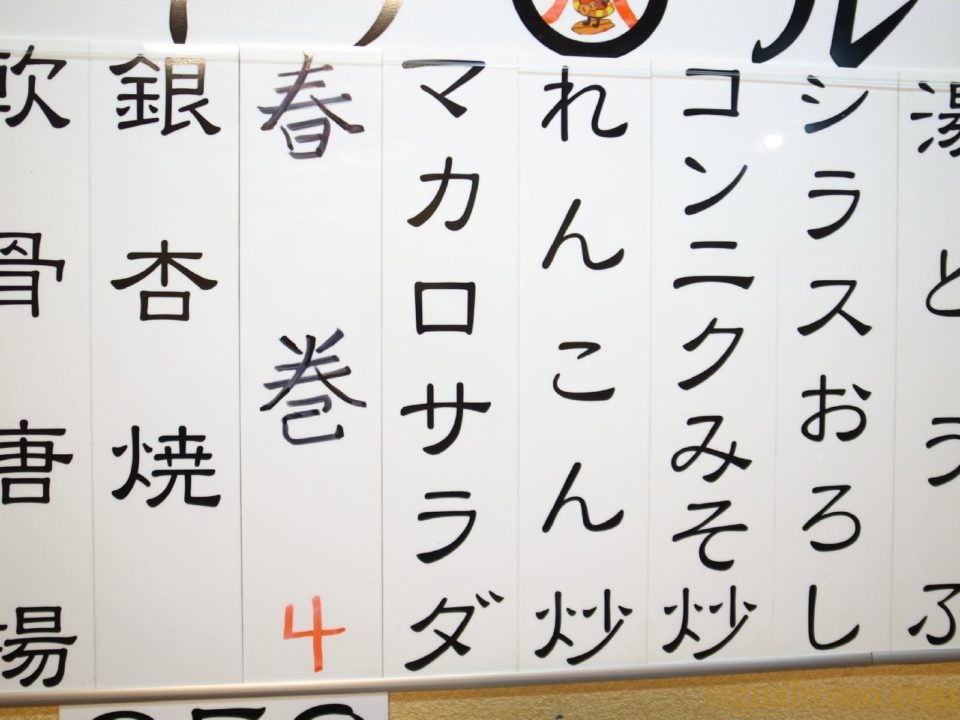 湯とうふ
シラスおろし
コンニクみそ炒
れんこん炒
マカロサラダ
春巻4
銀杏焼
軟骨唐揚